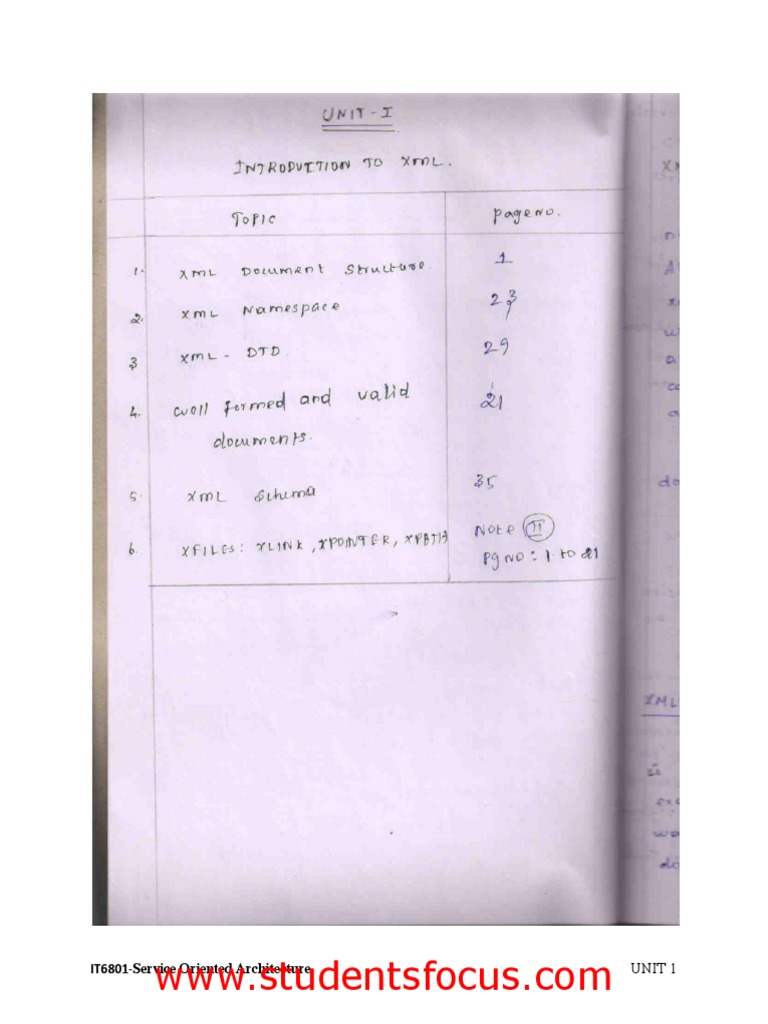 UNIT-I
INTRODUCTION TO XML.
Topic pageno.
1. XML Document Structure. 1
2. XML Namespace 23
3 XML - DTD. 29
4. Well formed and valid 21
documents.
5. XML Schema 35
6. XFILES: XLINK, XPOINTER, XPATH Note II
Pg NO: 1 to 21
XML
IT6801-Service Oriented Architecture UNIT 1
www.studentsfocus.com